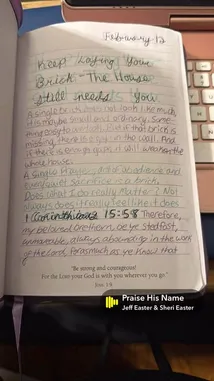 February 12
Keep Laying Your
Brick - The House
still needs You
A single brick does not look like much
it is maybe small and ordinary. Some
thing easy to overlook. But if that brick is
missing, there is a gap in the wall. And
if there is enough gaps, it will weaken the
whole house.
A single Prayer, act of obedience and
even quiet Sacrifice is a brick.
Does what I do really Matter. Not
always does it really feel like it does
1 Corinthians 15:58 Therefore,
my beloved brethren, be ye stedfast,
unmoveable, always abounding in the work
of the Lord, forasmuch as ye know that
"Be strong and courageous!
For the LORD your God is with you wherever you go."
Josh. 1:9
Praise His Name
Jeff Easter & Sheri Easter